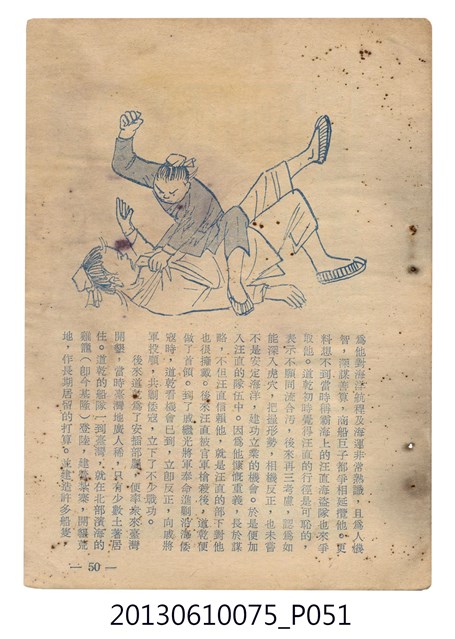 爲他對海洋航程及海運非常熟識，且爲人機
智，深謀善算，商船巨子都爭相延攬他。更
料想不到當時稱霸海上的汪直海盜隊也來爭
取他。道乾初時覺得汪直的行徑是可恥的，
表示不願同流合汚，後來再三考慮，認爲如
能深入虎穴，把握形勢，相機反正，也未嘗
不是安定海洋，建功立業的機會。於是便加
入汪直的隊伍中。因爲他慷慨重義，長於謀
略，不但汪直信賴他，就是汪直的部下對他
也很擁戴。後來汪直被官軍槍殺後，道乾便
做了首領。到了戚繼光將軍奉命進剿沿海倭
寇時，道乾看機會已到，立卽反正，向戚將
軍投順，共剿倭寇，立下了不少戰功。
後來道乾爲了安插部屬，便率衆來臺灣
開墾，當時臺灣地廣人稀，只有少數土著居
住。道乾的船隊一到臺灣，就在北部濱海的
雞籠（卽今基隆）登陸，建築寨寮，開墾荒
地，作長期居留的打算。並建造許多船隻，
— 50 —
20130610075_P051